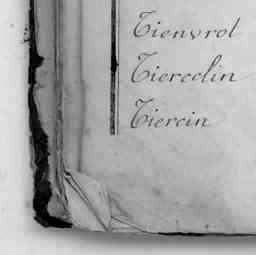 Tienvrol
Tiercelin
Tiercin